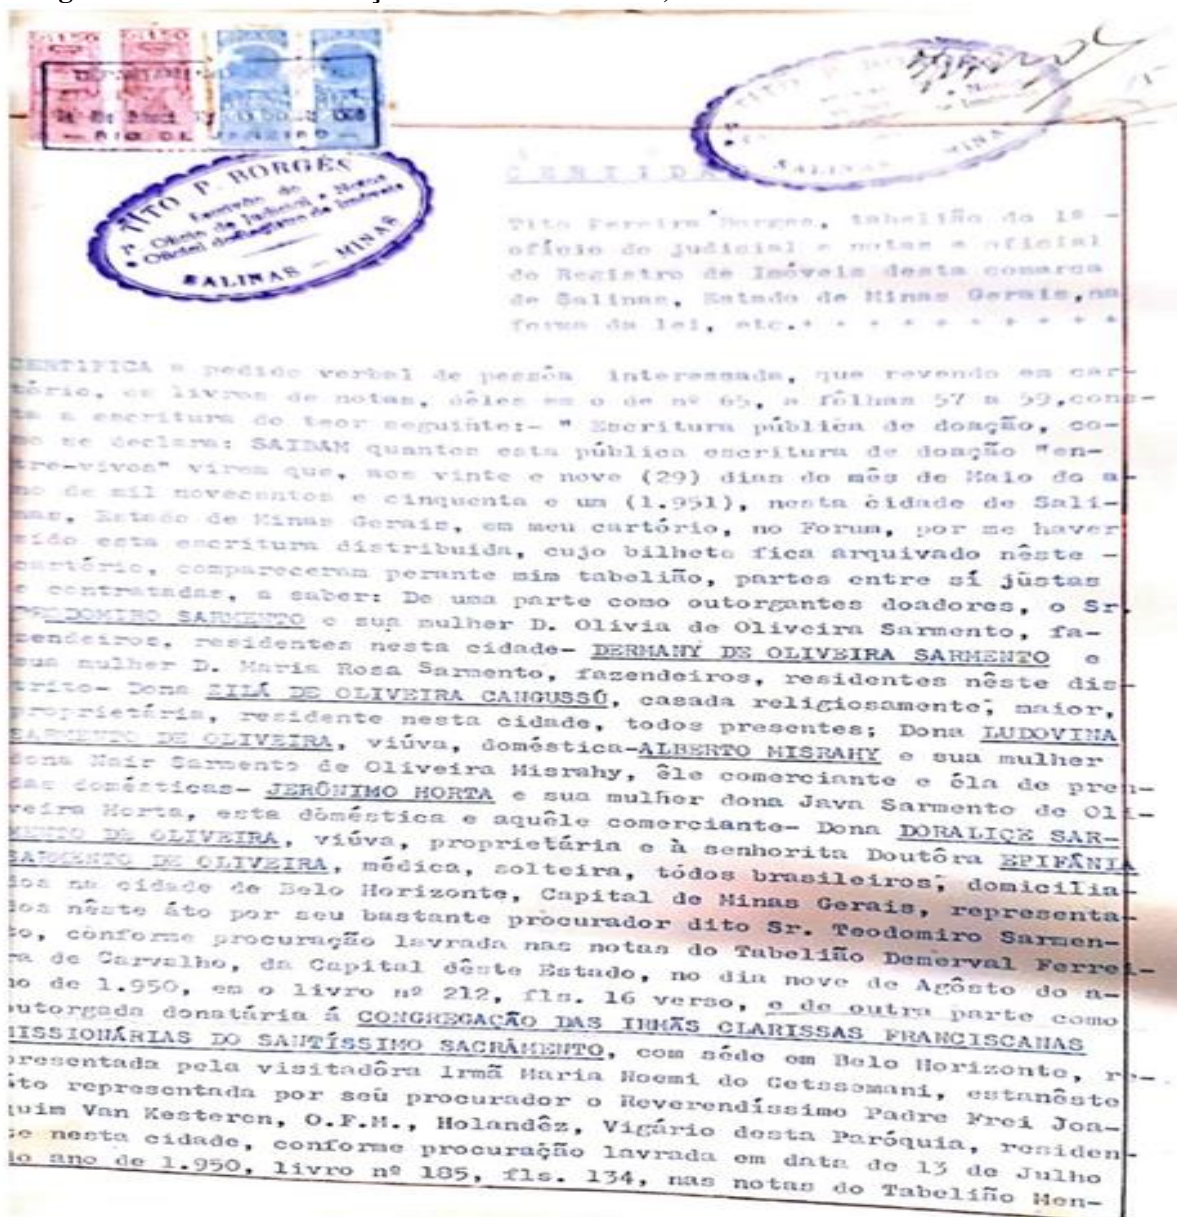 TITO P. BORGES
Escrivão do
1º Ofício do Judicial e Notas
Oficial do Registro de Imóveis
SALINAS — MINAS
RIO DE JANEIRO
TITO P.
SALINAS MINAS
CERTIDÃ
Tito Pereira Borges, tabelião do 1º -
ofício do judicial e notas e oficial
do Registro de Imóveis desta comarca
de Salinas, Estado de Minas Gerais, na
forma da lei, etc.+ + + + + + + + + +
CERTIFICA a pedido verbal de pessôa interessada, que revendo em car-
tório, os livros de notas, dêles em o de nº 65, a fôlhas 57 a 59,cons-
ta a escritura do teor seguinte:- " Escritura pública de doação, co-
mo se declara: SAIBAM quantos esta pública escritura de doação "en-
tre-vivos" virem que, aos vinte e nove (29) dias do mês de Maio do a-
no de mil novecentos e cinquenta e um (1.951), nesta cidade de Sali-
nas, Estado de Minas Gerais, em meu cartório, no Forum, por me haver
sido esta escritura distribuida, cujo bilhete fica arquivado nêste -
cartório, compareceram perante mim tabelião, partes entre sí jùstas
e contratadas, a saber: De uma parte como outorgantes doadores, o Sr.
TEODOMIRO SARMENTO e sua mulher D. Olivia de Oliveira Sarmento, fa-
zendeiros, residentes nesta cidade- DERMANY DE OLIVEIRA SARMENTO e
sua mulher D. Maria Rosa Sarmento, fazendeiros, residentes nêste dis-
trito- Dona ZILÁ DE OLIVEIRA CANGUSSÚ, casada religiosamente, maior,
proprietária, residente nesta cidade, todos presentes; Dona LUDOVINA
SARMENTO DE OLIVEIRA, viúva, doméstica-ALBERTO MISRAHY e sua mulher
dona Nair Sarmento de Oliveira Misrahy, êle comerciante e éla de pren-
das domésticas- JERÔNIMO HORTA e sua mulher dona Java Sarmento de Oli-
veira Horta, esta doméstica e aquêle comerciante- Dona DORALICE SAR-
MENTO DE OLIVEIRA, viúva, proprietária e à senhorita Doutôra EPIFÂNIA
SARMENTO DE OLIVEIRA, médica, solteira, tódos brasileiros, domicilia-
dos na cidade de Belo Horizonte, Capital de Minas Gerais, representa-
dos nêste áto por seu bastante pròcurador dito Sr. Teodomiro Sarmen-
to, cònforme procuração lavrada nas notas do Tabelião Demerval Ferrei-
ra de Carvalho, da Capital dêste Estado, no dia nove de Agôsto do a-
no de 1.950, em o livro nº 212, fls. 16 verso, e de outra parte como
outorgada donatária á CONGREGAÇÃO DAS IRMÃS CLARISSAS FRANCISCANAS
MISSIONÁRIAS DO SANTÍSSIMO SACRAMENTO, com séde em Belo Horizonte, r-
presentada pela visitadôra Irmã Maria Noemi do Getssemani, estanêste
áto representada por seù procurador o Reverendíssimo Padre Frei Joa-
quim Van Kesteren, O.F.M., Holandêz, Vigário desta Paróquia, residen-
te nesta cidade, conforme procuração lavrada em data de 13 de Julho
do ano de 1.950, livro nº 185, fls. 134, nas notas do Tabelião Men-